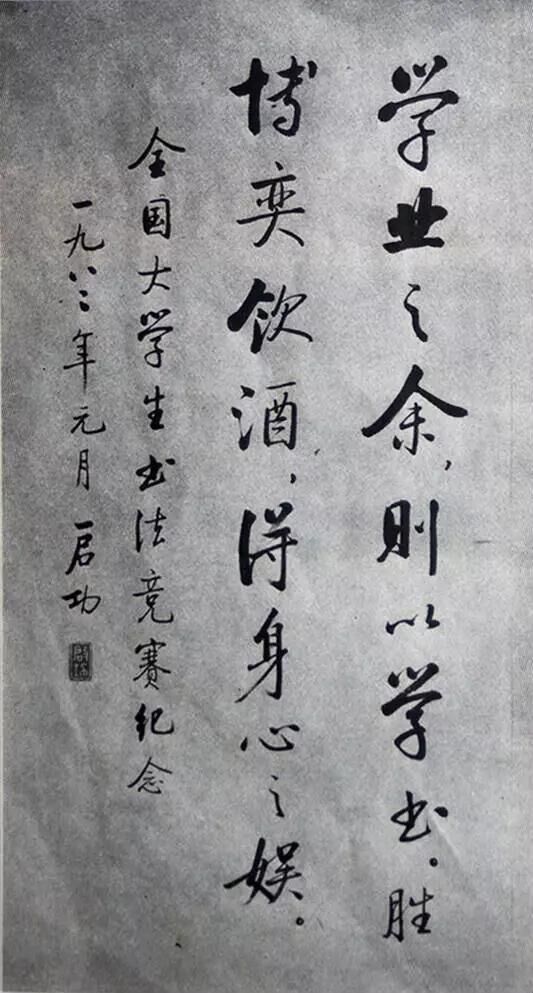 学业之余，则以学书。胜
博奕饮酒，得身心之娱。
全国大学生书法竞赛纪念
一九八二年元月 启功